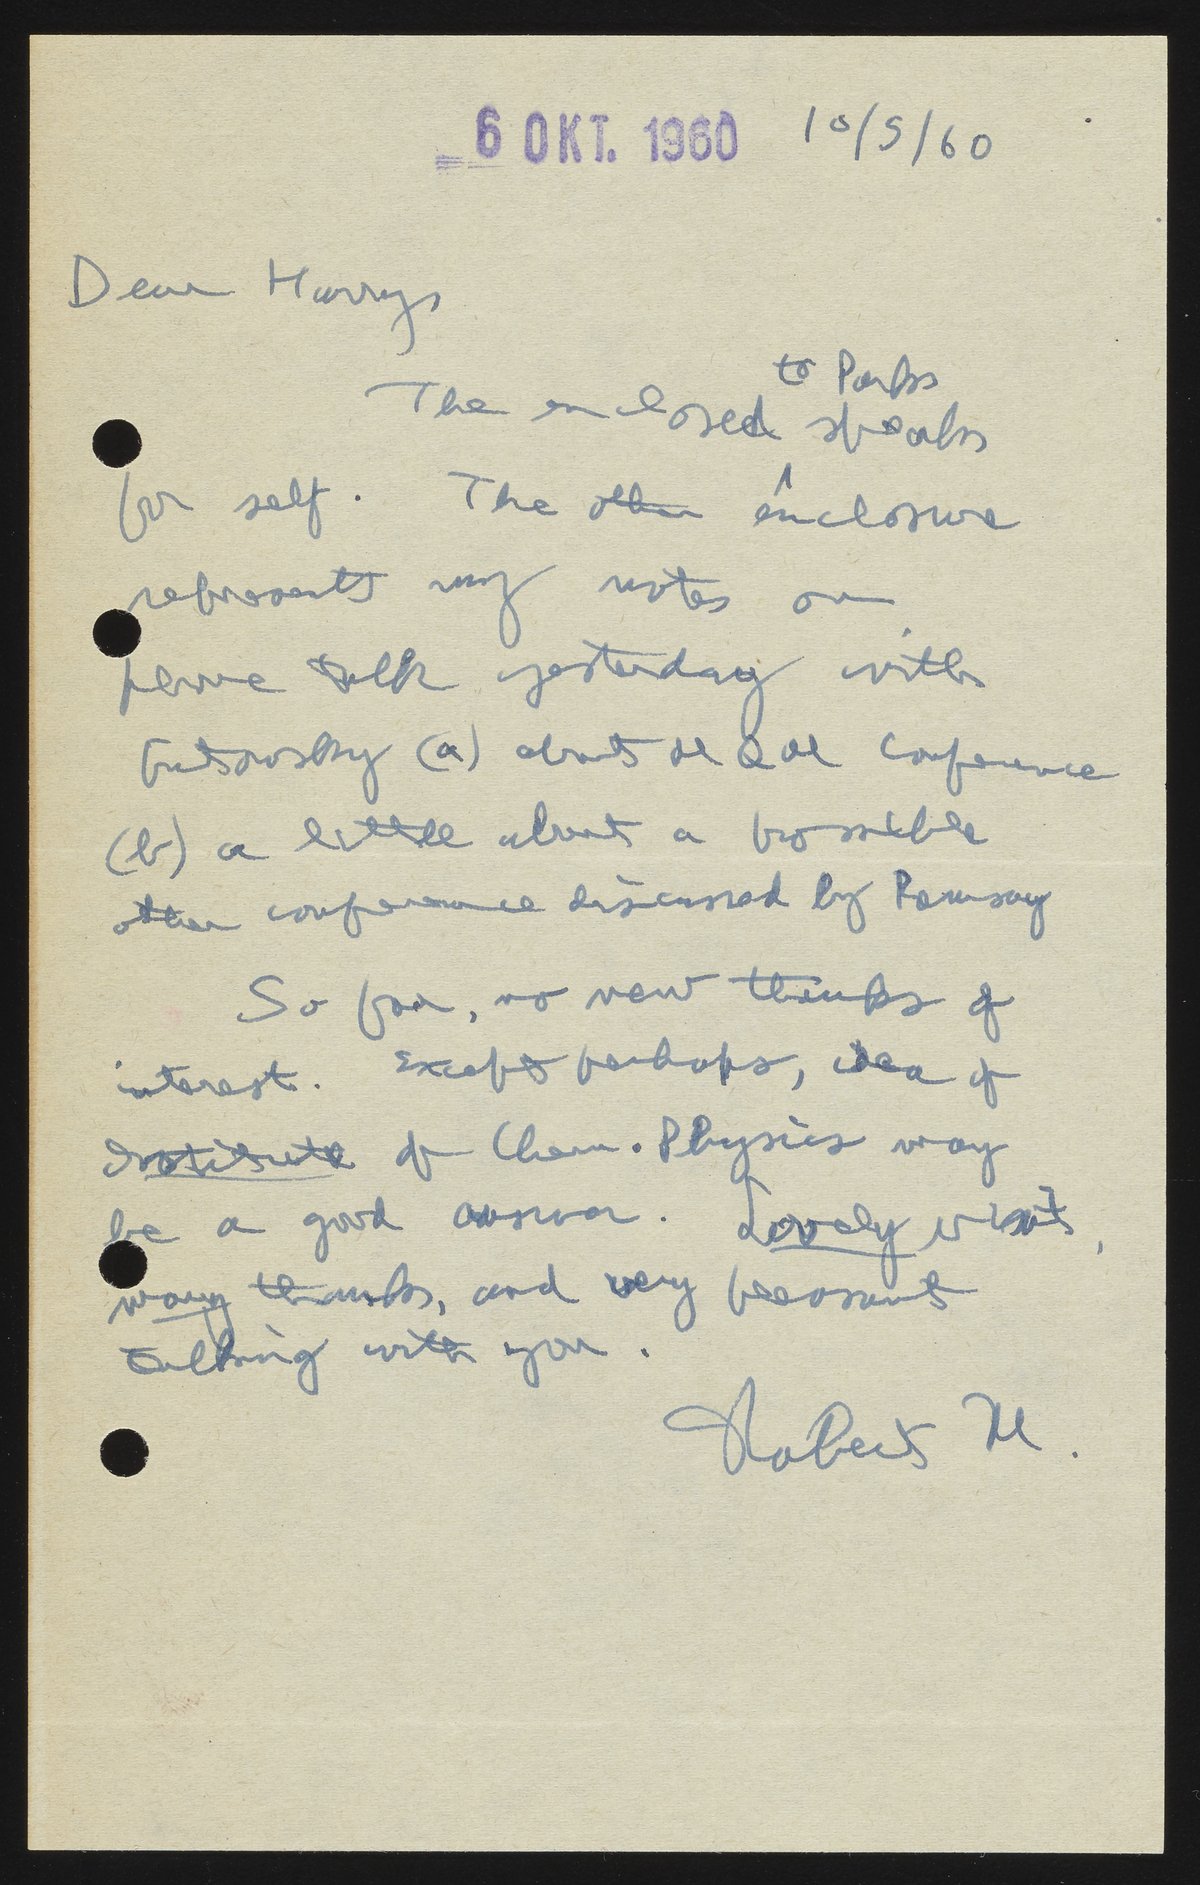 6 OKT. 1960 10/5/60
Dear Harry,
to Parks
The enclosed speaks
for self. The other enclosure
represents my notes on
phone talk yesterday with
(a) about conference
(b) a little about a possible
other conference discussed by Ramsay
So far, no new thinks of
interest. Except perhaps, idea of
Institute of Chem. Physics may
be a good answer. Lovely visit,
many thanks, and very pleasant
talking with you.
Robert M.